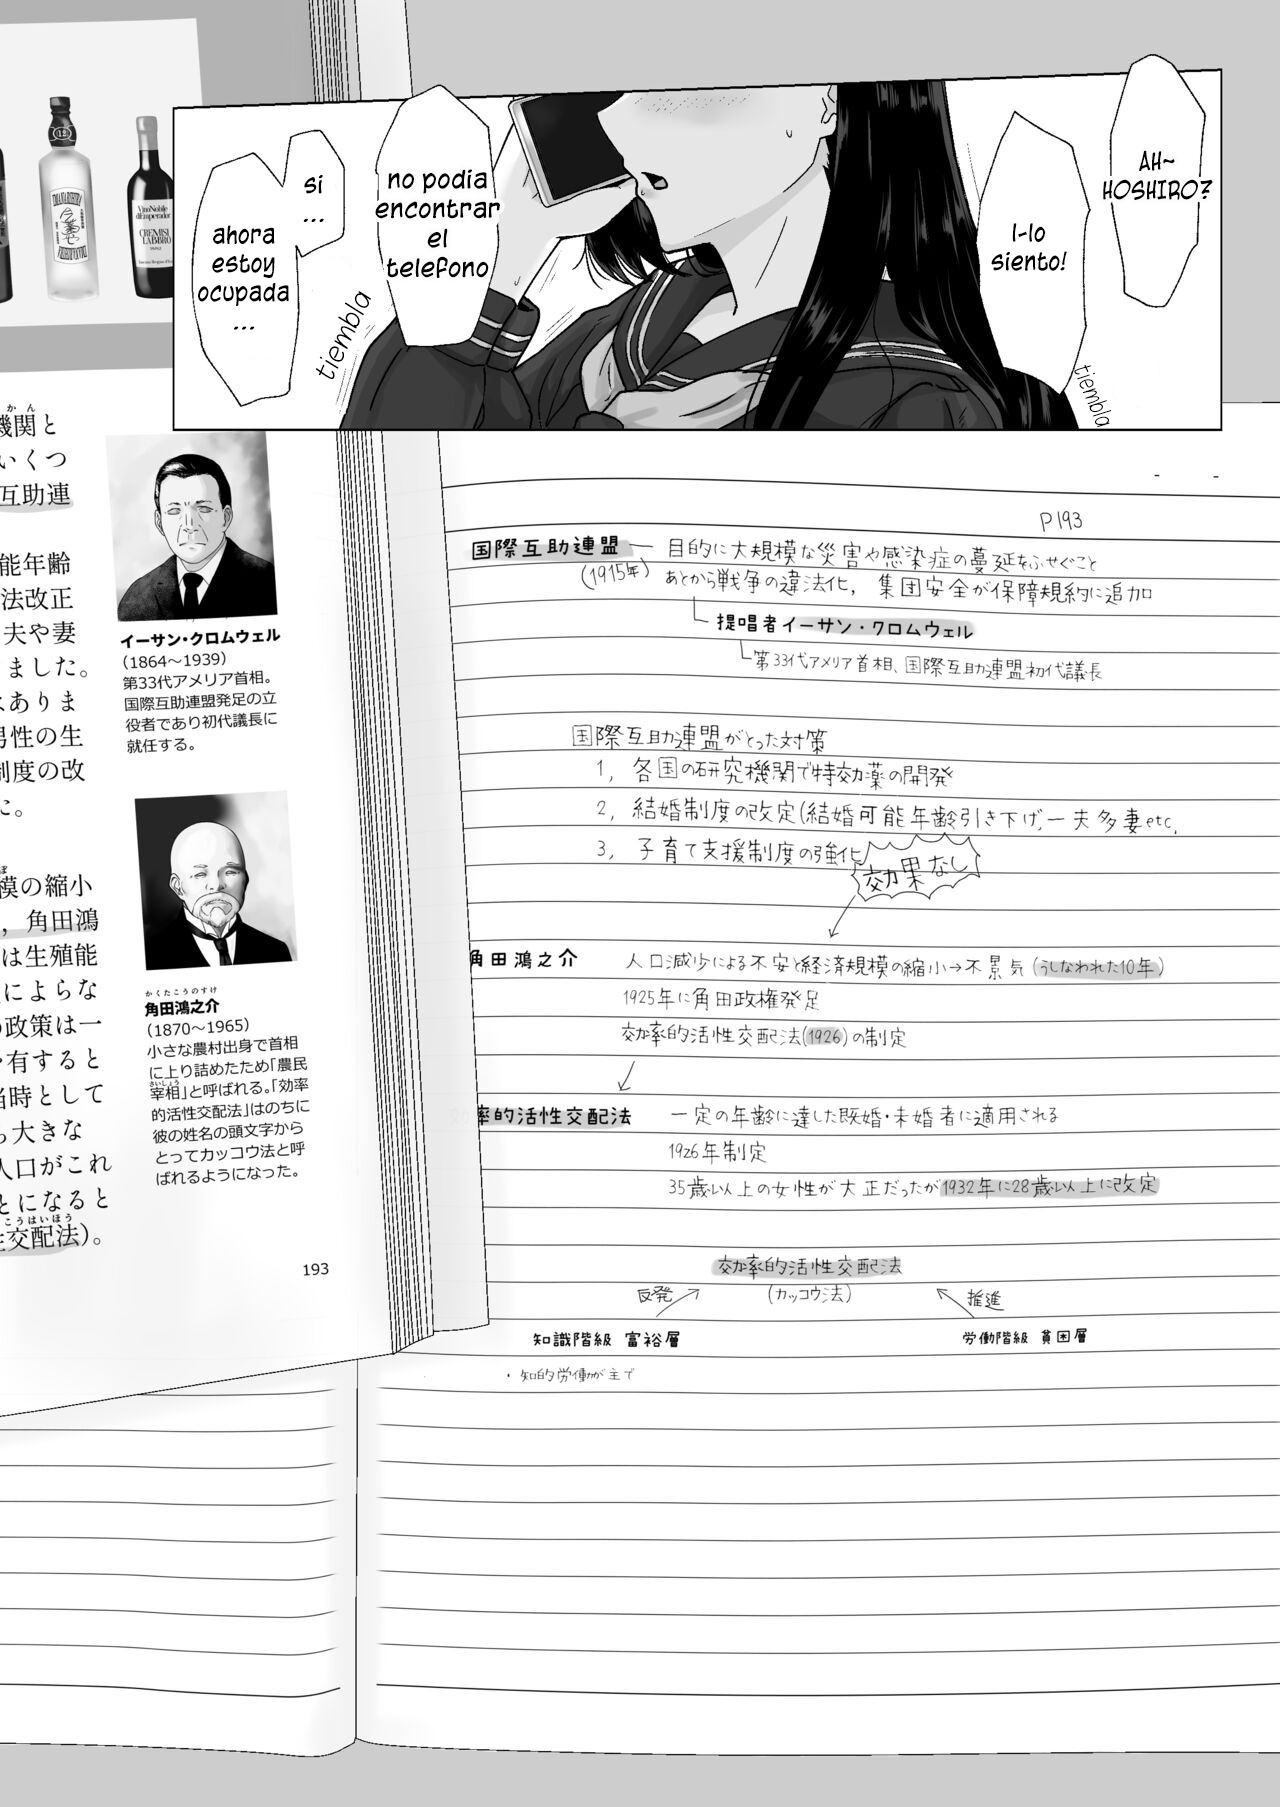 AH~
HOSHIRO?
I-lo
siento!
tiembla
no podía
encontrar
el
telefono
si
...
ahora
estoy
ocupada
...
tiembla
12
Vino Nobile
d'Emperador
CREMISI
LABBRO
かん
機関と
いくつ
互助連
能年齢
法改正
夫や妻
りました。
はありま
男性の生
制度の改
た。
模の縮小
，角田鴻
は生殖能
によらな
の政策は一
を有すると
当時として
も大きな
人口がこれ
とになると
こうはいほう
性交配法)。
イーサン・クロムウェル
(1864～1939)
第33代アメリア首相。
国際互助連盟発足の立
役者であり初代議長に
就任する。
かくたこうのすけ
角田鴻之介
(1870～1965)
小さな農村出身で首相
に上り詰めたため「農民
さいしょう
宰相」と呼ばれる。「効率
的活性交配法」はのちに
彼の姓名の頭文字から
とってカッコウ法と呼
ばれるようになった。
193
P193
国際互助連盟 ― 目的に大規模な災害や感染症の蔓延をふせぐこと
(1915年) あとから戦争の違法化, 集団安全が保障規約に追加
提唱者イーサン・クロムウェル
第33代アメリア首相、国際互助連盟初代議長
国際互助連盟がとった対策
1, 各国の研究機関で特効薬の開発
2, 結婚制度の改定(結婚可能年齢引き下げ, 一夫多妻etc,
3, 子育て支援制度の強化
効果なし
角田鴻之介 人口減少による不安と経済規模の縮小→不景気(うしなわれた10年)
1925年に角田政権発足
効率的活性交配法(1926)の制定
効率的活性交配法 一定の年齢に達した既婚・未婚者に適用される
1926年制定
35歳以上の女性が大正だったが1932年に28歳以上に改定
効率的活性交配法
(カッコウ法)
反発
推進
知識階級 富裕層
労働階級 貧困層
・知的労働が主で